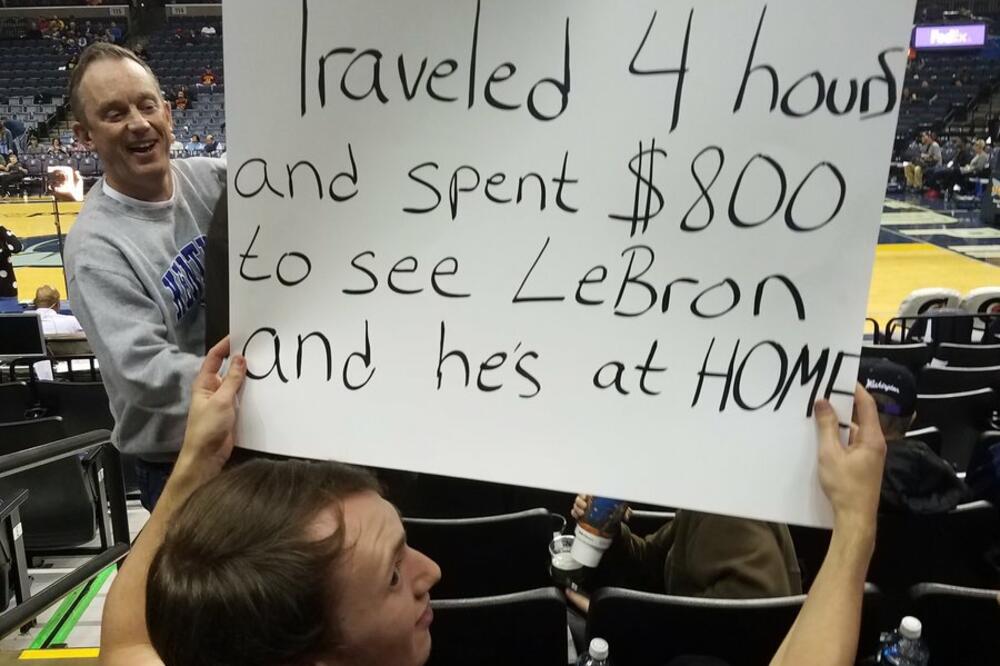 115
Traveled 4 hours
FedEx
and spent $800
to see LeBron
and he's at HOME